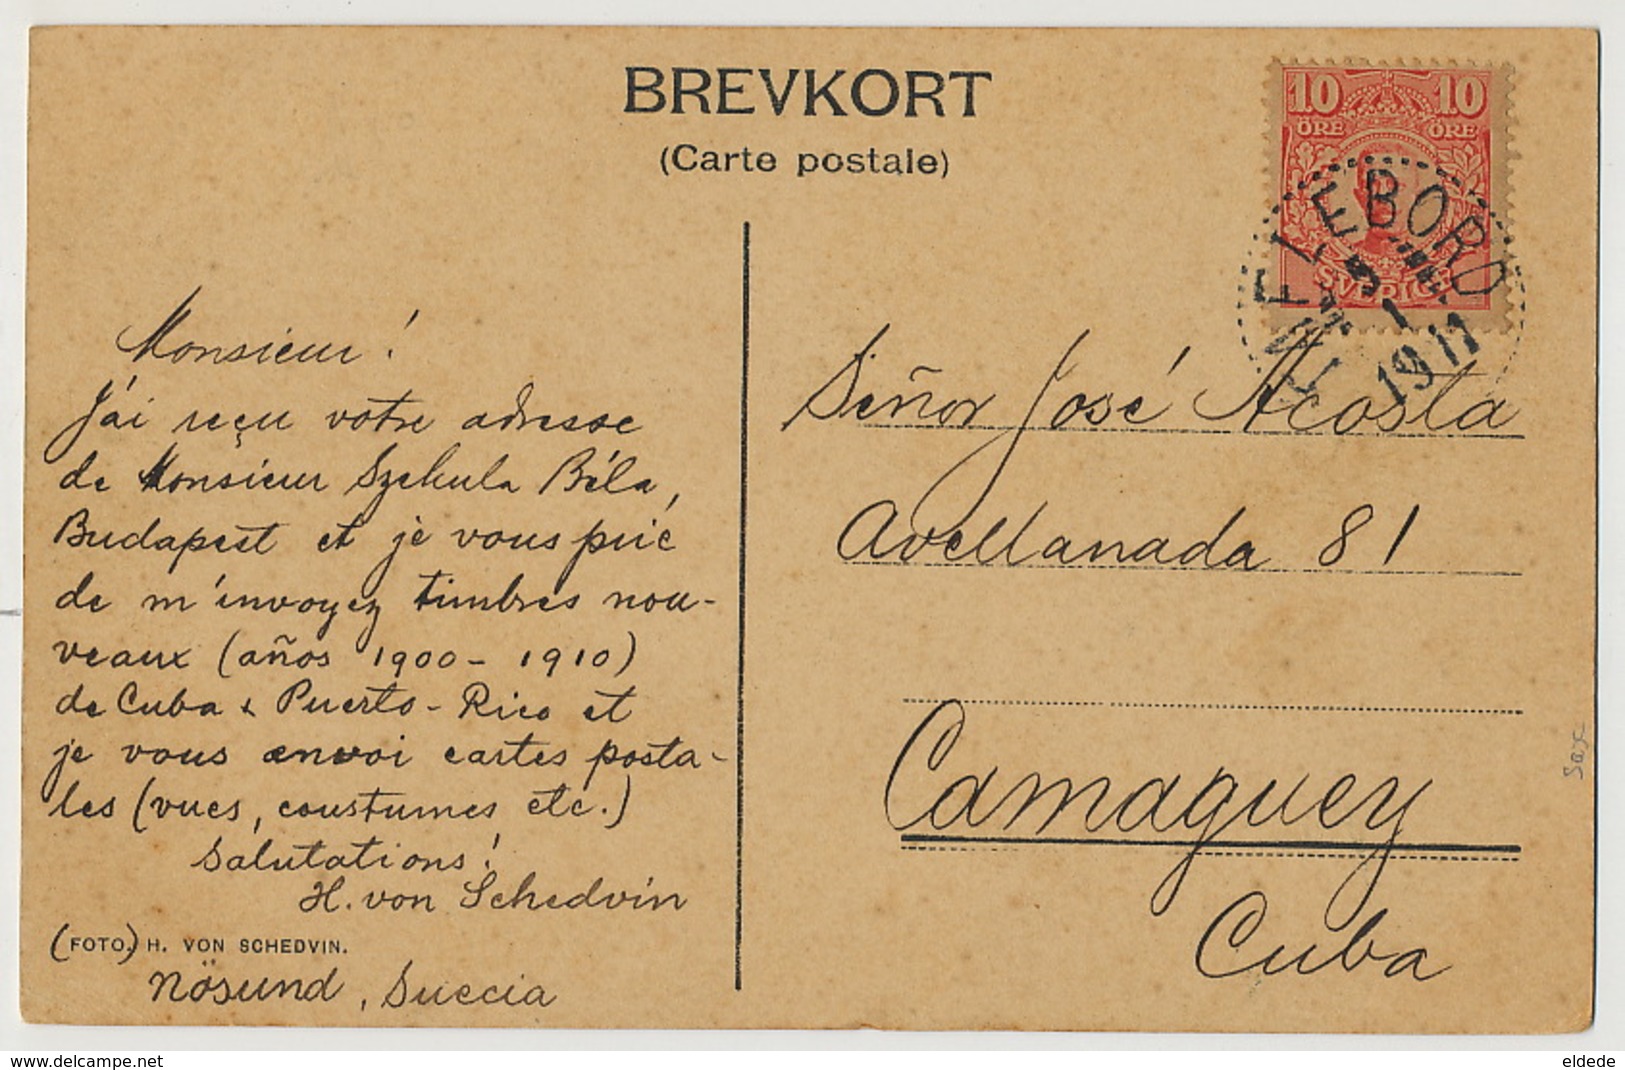 BREVKORT
(Carte postale)
10 10
ÖRE ÖRE
SVERIGE
1911
Monsieur!
J'ai reçu votre adresse
de Monsieur Szekula Béla,
Budapest et je vous prie
de m'envoyez timbres nou-
veaux (años 1900-1910)
de Cuba & Puerto-Rico et
je vous envoi cartes posta-
les (vues, coustumes etc.)
Salutations!
H. von Schedvin
(FOTO.) H. VON SCHEDVIN.
Nösund, Suecia
Señor José Acosta
Avellanada 81
Camaguey
Cuba
eldede - www.delcampe.net